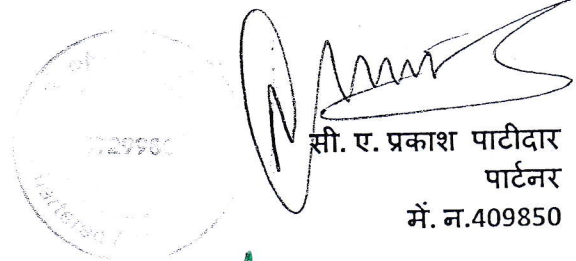 सी. ए. प्रकाश पाटीदार
पार्टनर
में. न.409850